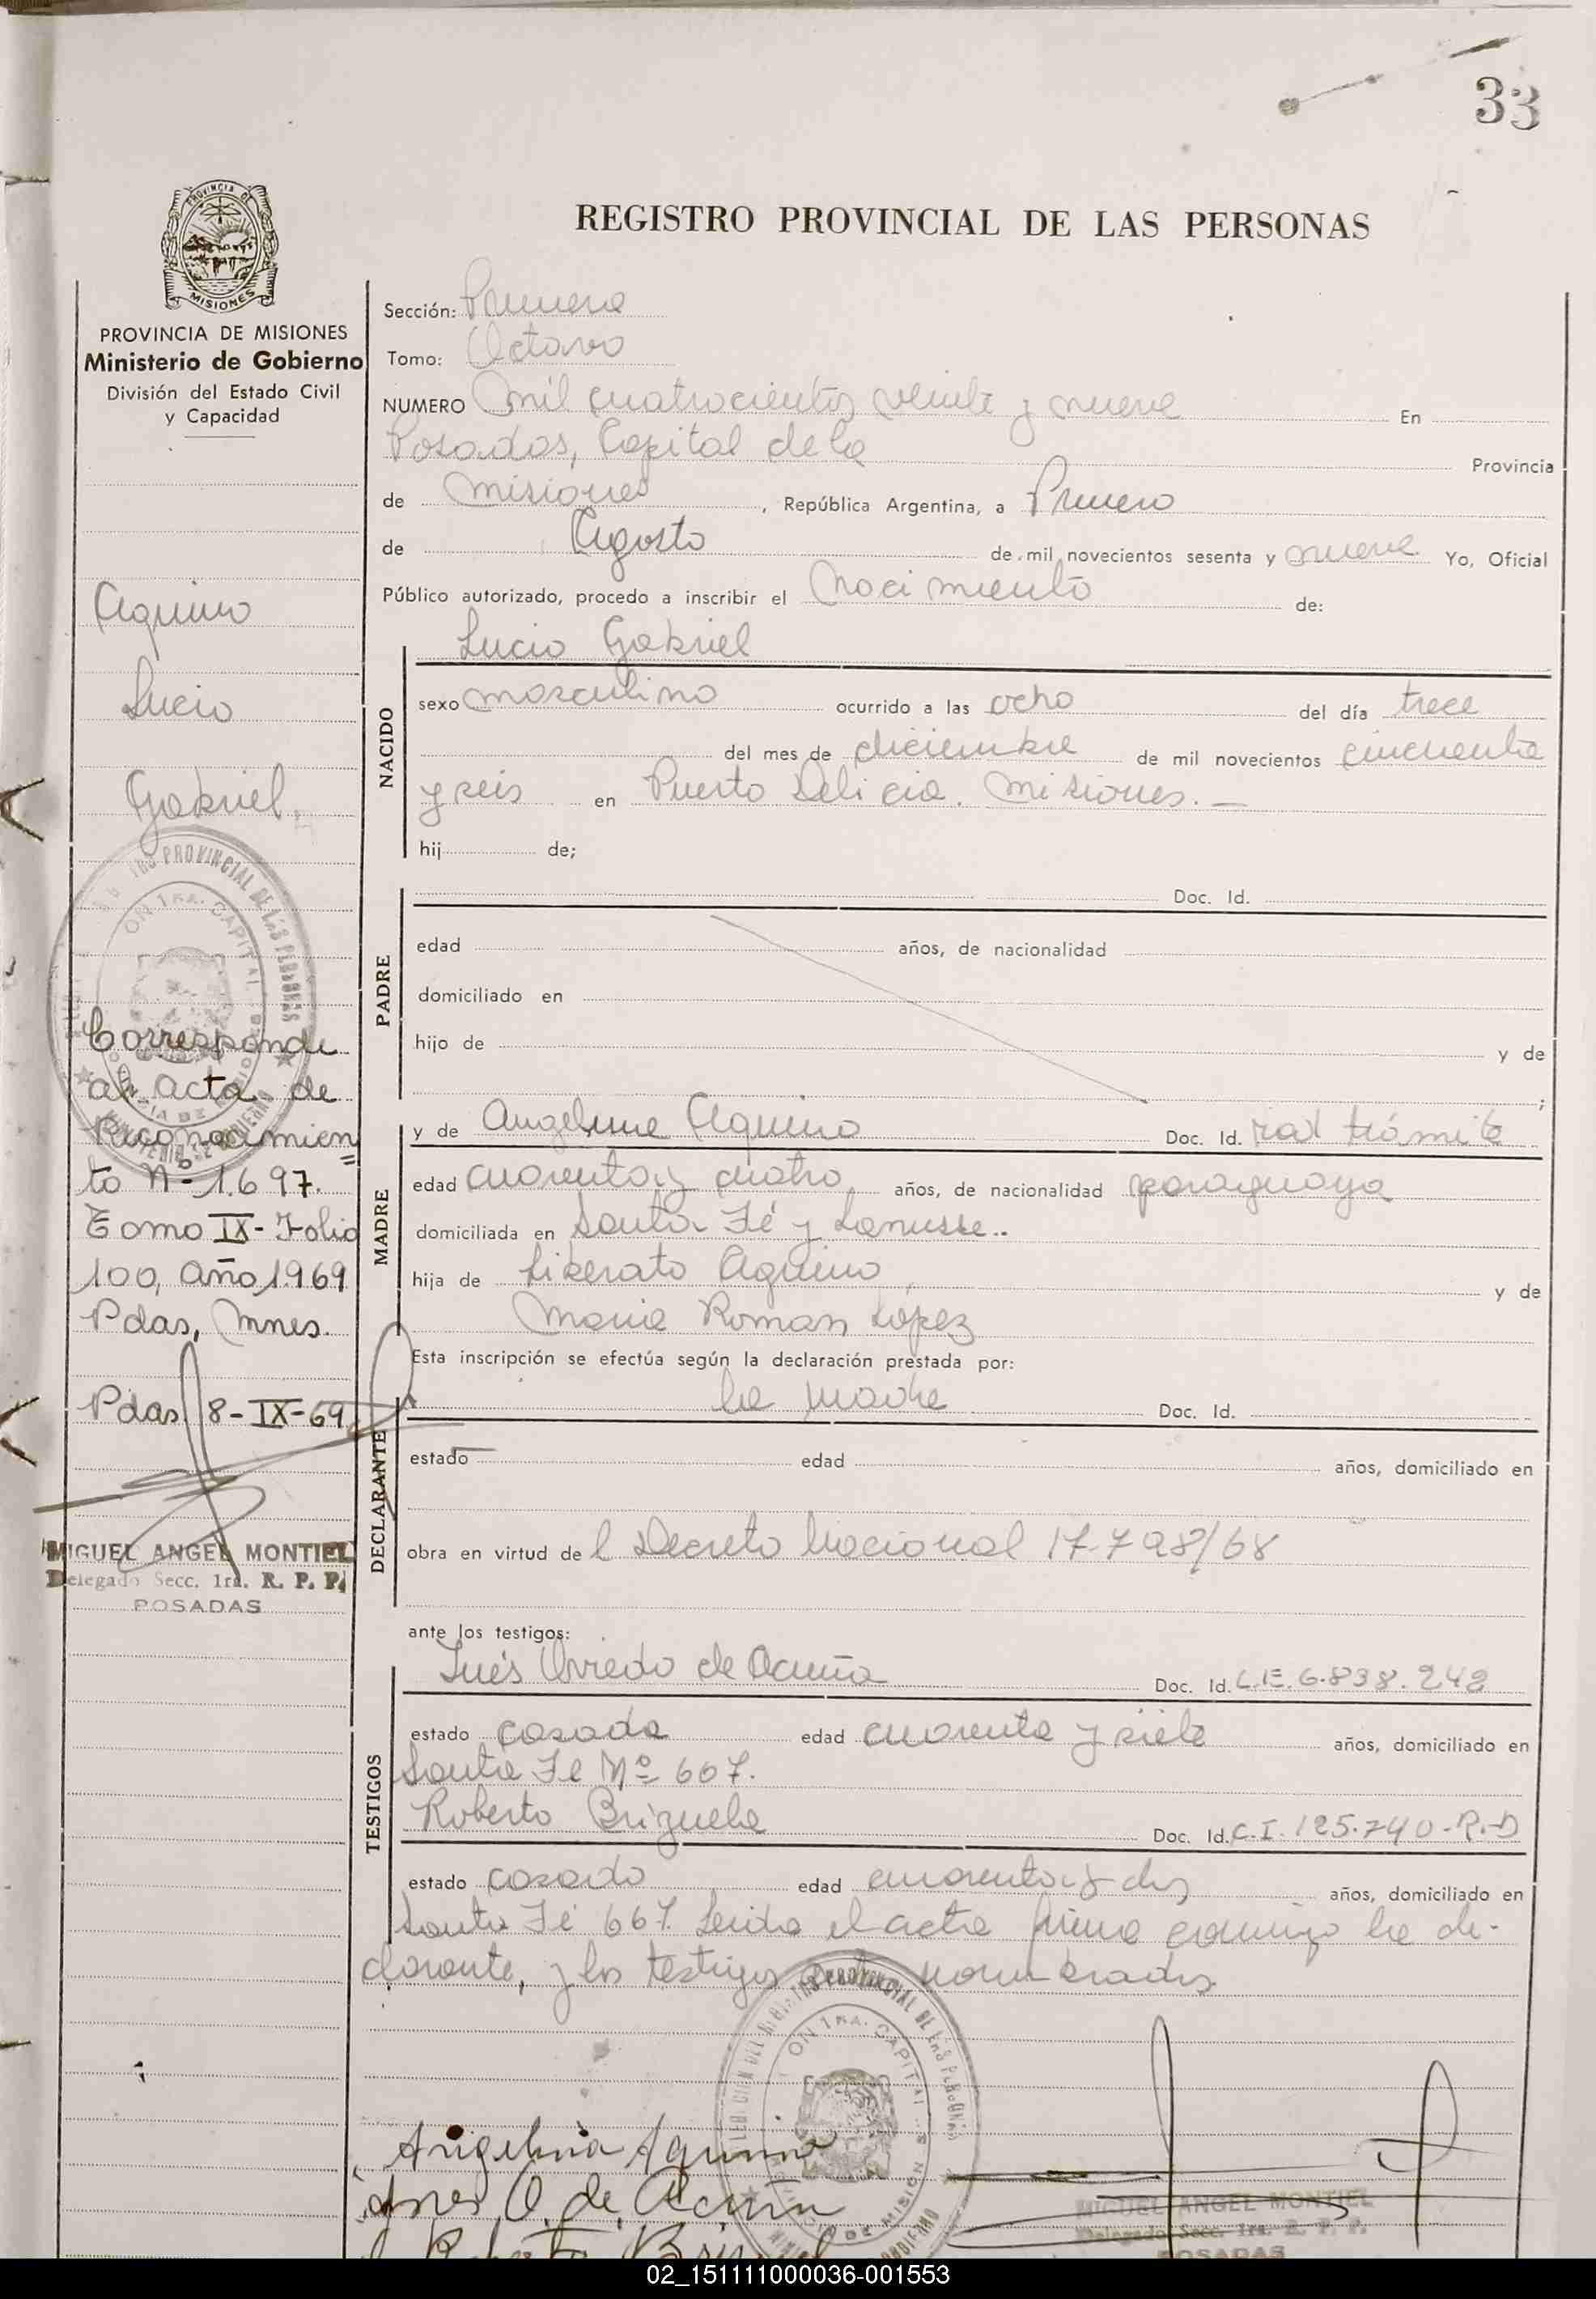 33
PROVINCIA DE
MISIONES
REGISTRO PROVINCIAL DE LAS PERSONAS
PROVINCIA DE MISIONES
Ministerio de Gobierno
División del Estado Civil
y Capacidad
Aquino
Lucio
Gabriel.
Corresponde
al acta de
Reconocimien
to Nº 1.697.
Tomo IX - Folio
100, año 1969
Pdas, Mnes.
Pdas 8-IX-69
MIGUEL ANGEL MONTIEL
Delegado Secc. 1ra. R. P. P.
POSADAS
Sección: Primera
Tomo: Octavo
NUMERO mil cuatrocientos veinte y nueve En
Posadas, Capital de la Provincia
de Misiones, República Argentina, a Primero
de Agosto de mil novecientos sesenta y nueve Yo, Oficial
Público autorizado, procedo a inscribir el nacimiento de:
Lucio Gabriel
NACIDO
sexo masculino ocurrido a las ocho del día trece
del mes de diciembre de mil novecientos cincuenta
y seis en Puerto Delicia. Misiones. —
hij de;
PADRE
Doc. Id.
edad años, de nacionalidad
domiciliado en
hijo de y de
;
MADRE
y de Angelina Aquino Doc. Id. rad trámite
edad cuarenta y cuatro años, de nacionalidad paraguaya
domiciliada en Santa Fé y Lanusse..
hija de Liberato Aquino, y de
Maria Roman López
Esta inscripción se efectúa según la declaración prestada por:
DECLARANTE
la madre Doc. Id.
estado edad años, domiciliado en
obra en virtud de l Decreto Nacional 17.798/68
ante los testigos:
TESTIGOS
Inés Oviedo de Acuña Doc. Id. L.E. 6.838.242
estado casada edad cuarenta y siete años, domiciliado en
Santa Fe Nº 667.
Roberto Brizuela Doc. Id. C.I. 125.740-R.D
estado casado edad cuarenta y dos años, domiciliado en
Santa Fé 667. Leida el acta firma conmigo la de-
clarante, y los testigos ante nombrados.
Angelina Aquino
Ines O. de Acuña
Roberto Brizuela
MIGUEL ANGEL MONTIEL
Delegado Secc. 1ra. R. P. P.
POSADAS
02_151111000036-001553